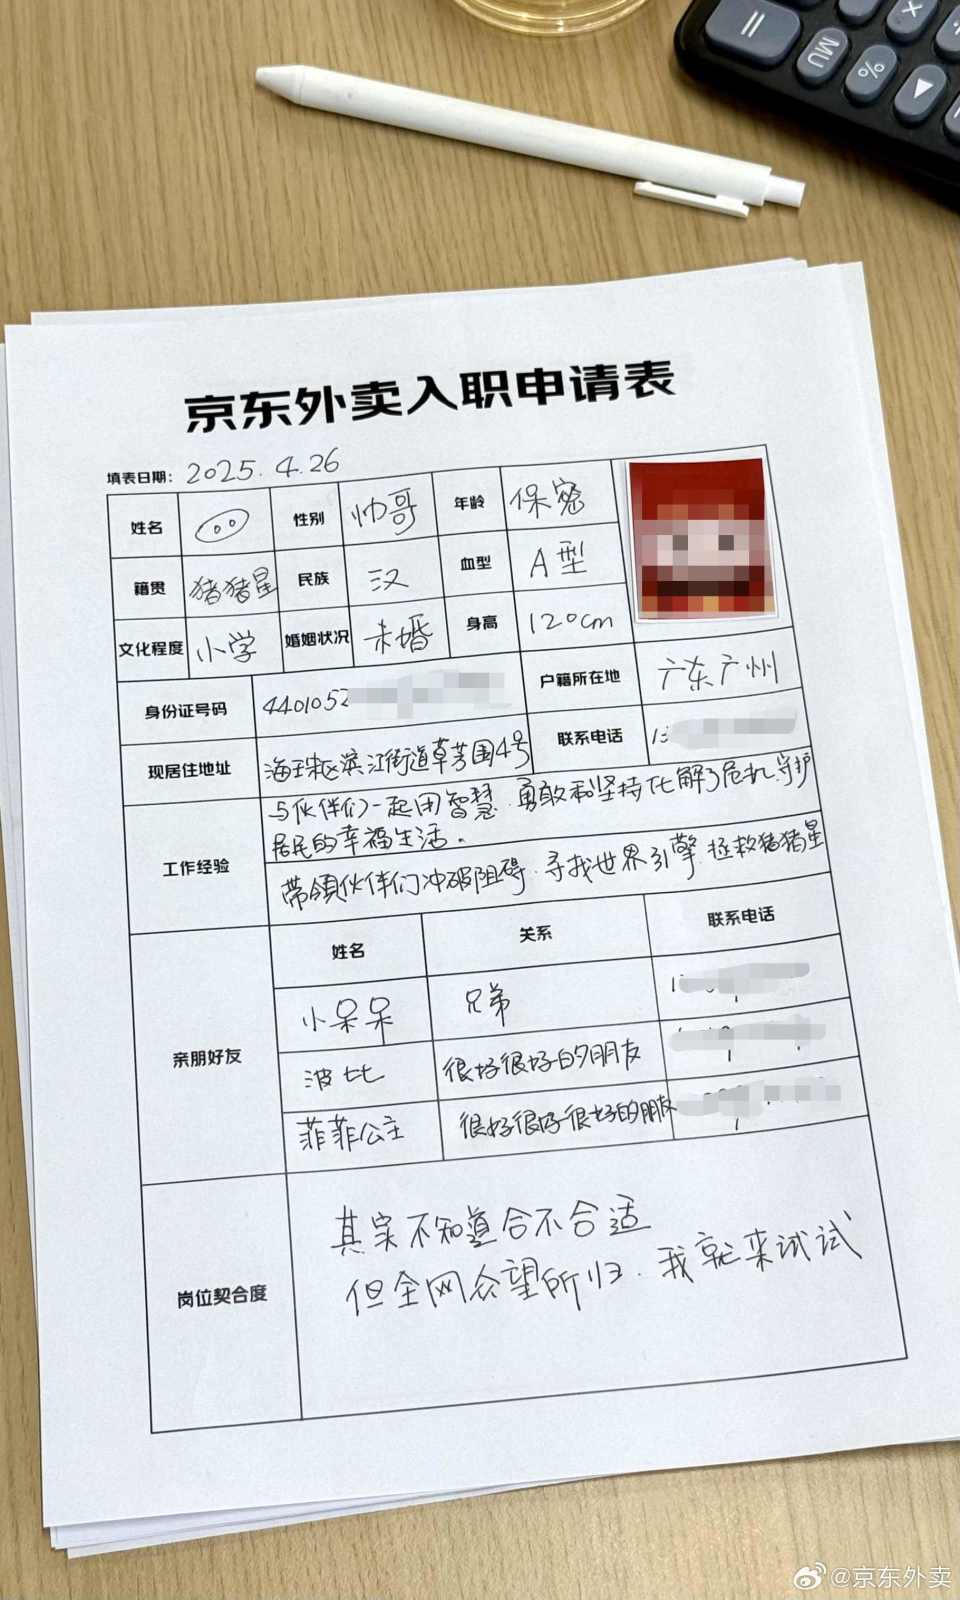 京东外卖入职申请表
填表日期： 2025.4.26
姓名 性别 帅哥 年龄 保密
籍贯 猪猪星 民族 汉 血型 A型
文化程度 小学 婚姻状况 未婚 身高 120cm
身份证号码 4401052 户籍所在地 广东广州
现居住地址 海珠区滨江街道草芳围4号 联系电话 13
工作经验
与伙伴们一起用智慧、勇敢和坚持化解了危机,守护
居民的幸福生活。
带领伙伴们冲破阻碍、寻找世界引擎、拯救猪猪星
亲朋好友
姓名 关系 联系电话
小呆呆 兄弟
波比 很好很好的朋友
菲菲公主 很好很好很好的朋友
岗位契合度
其实不知道合不合适
但全网众望所归、我就来试试
= MU % × ▶
@京东外卖